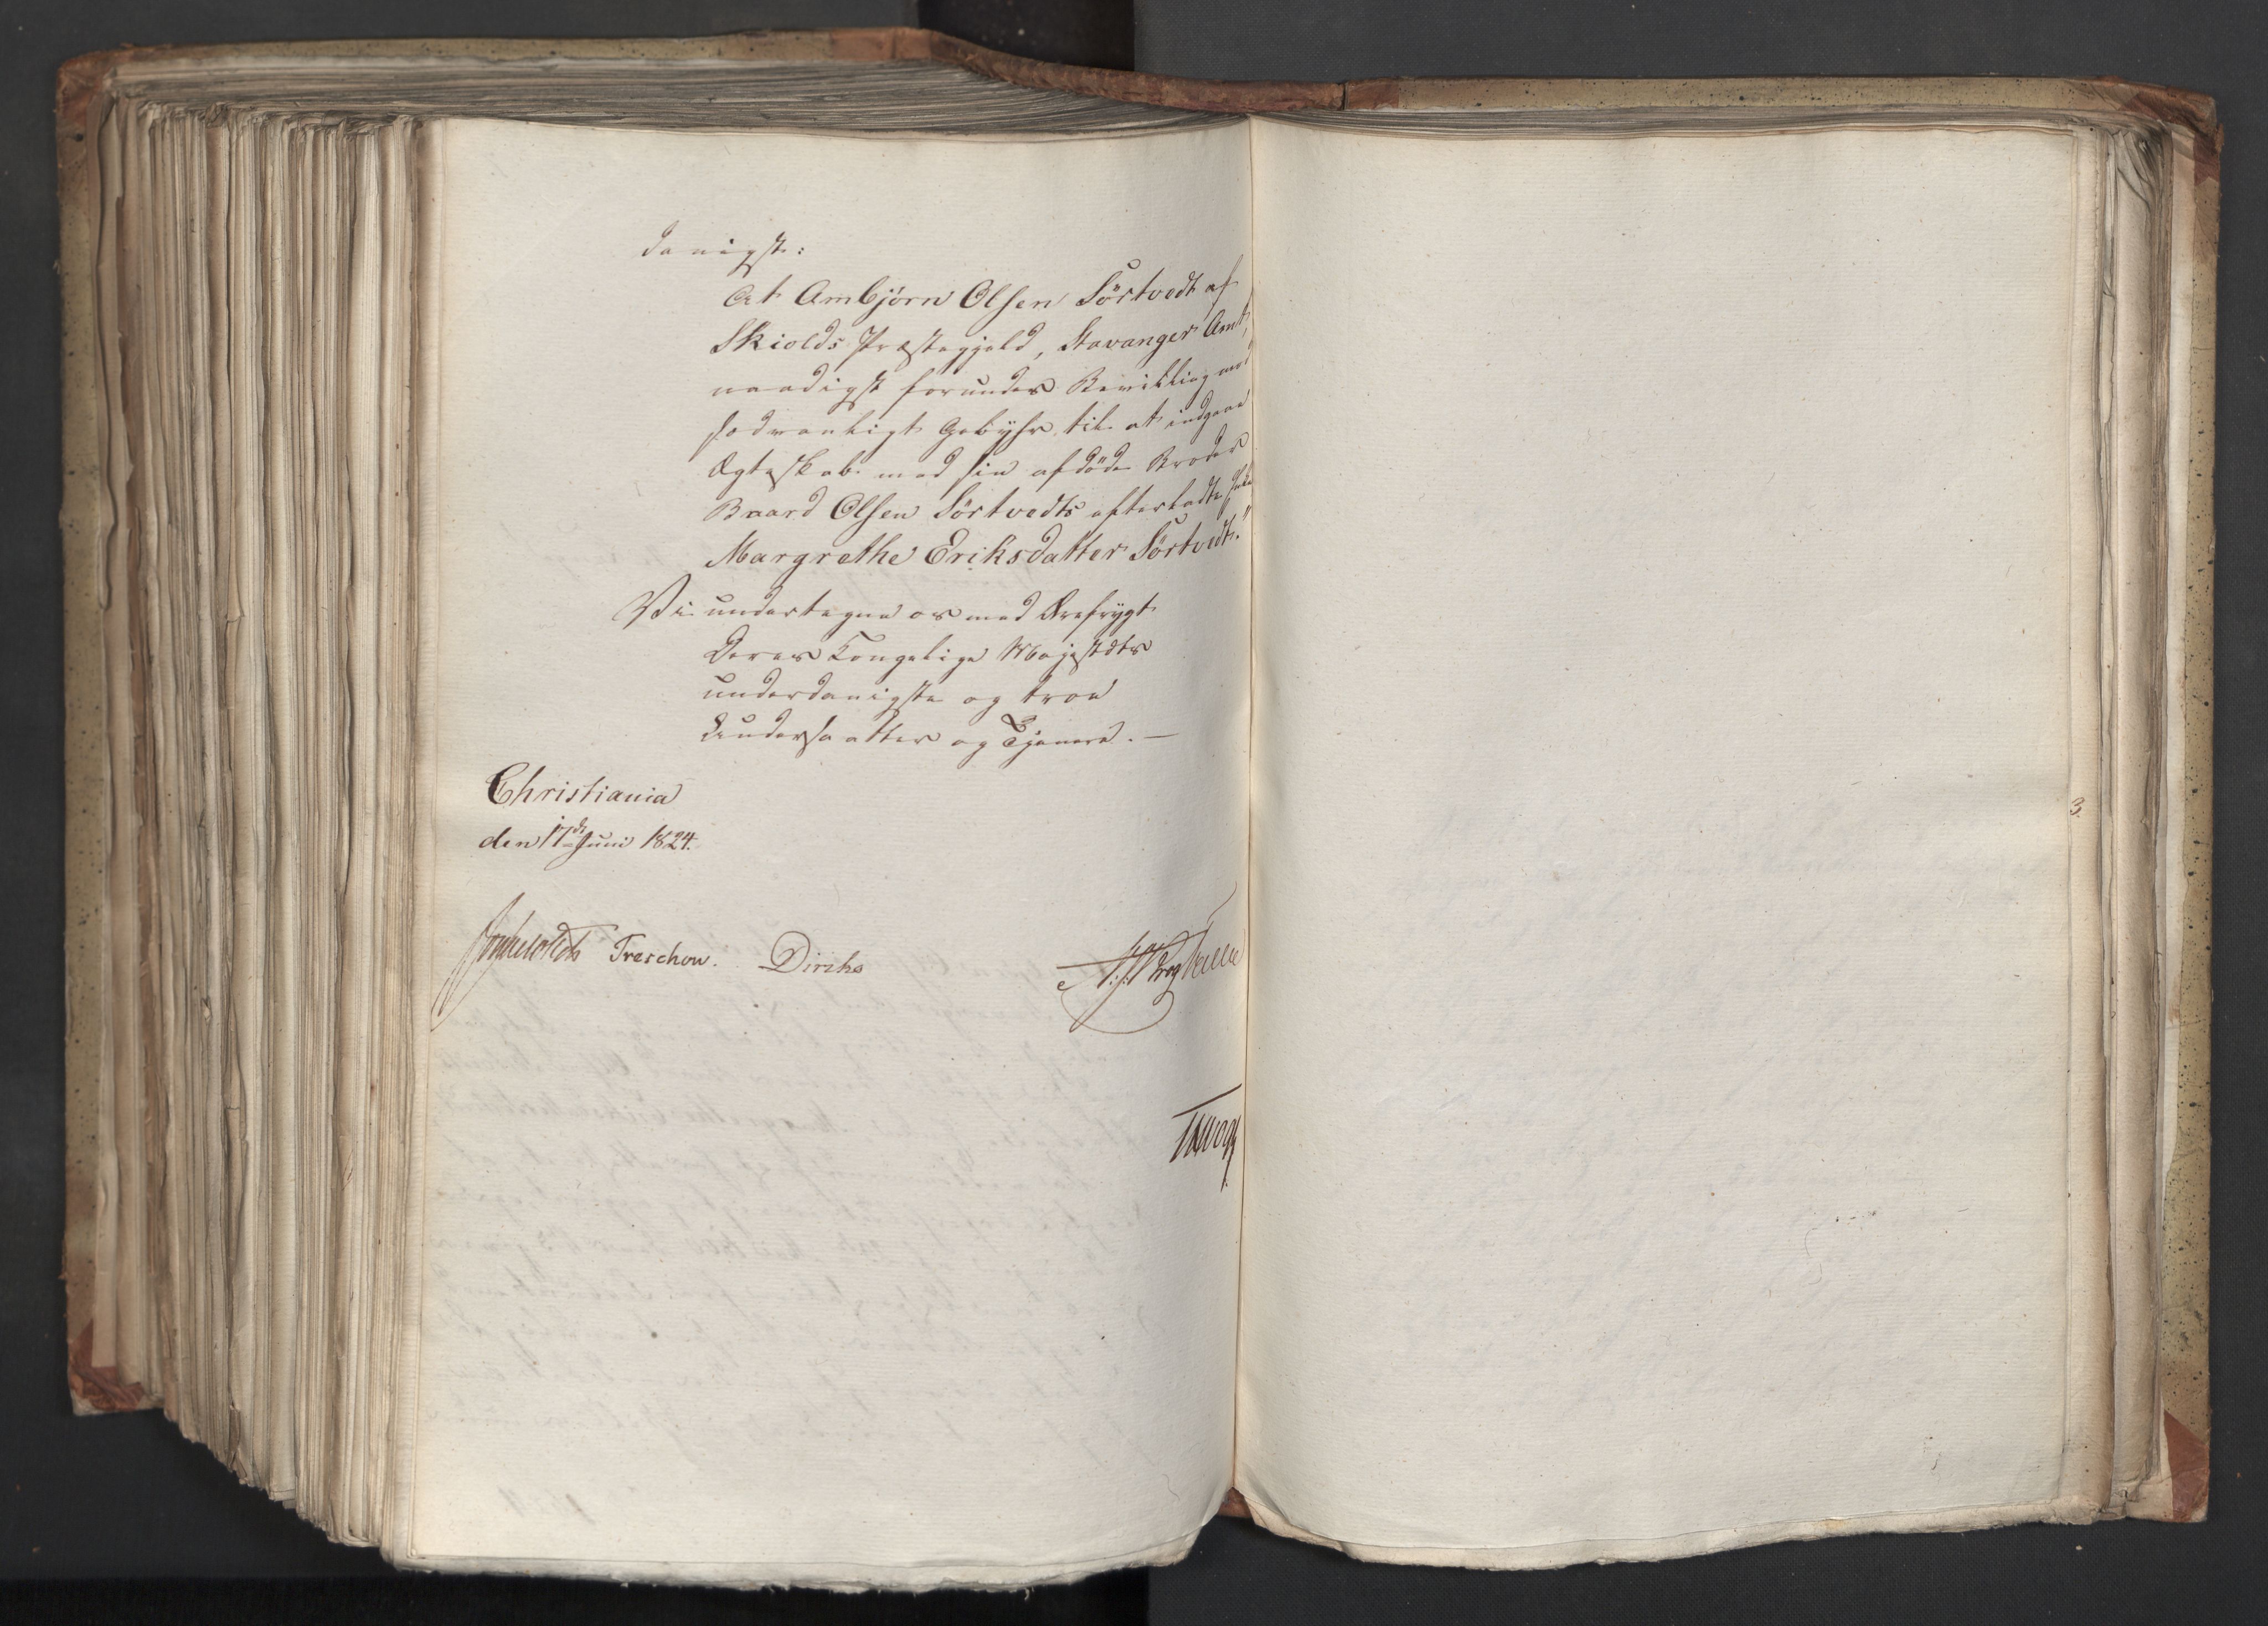 danigst:
At Ambjörn Olsen Sörtvedt af
Skiolds Præstegjeld, Stavanger Amt,
naadigst forundes Bevilling mod
sædvanligt Gebyhr til at indgaae
Ægteskab med sin afdöde Broder
Baard Olsen Sörtvedts efterladte Enke
Margrethe Eriksdatter Sörtvedt."
Vi undertegne os med Ærefrygt
Deres Kongelige Majestæts
underdanigste og troe
Undersaatter og Tjenere. —
Christiania
den 17de Juni 1824.
Treschow. Diriks
3.